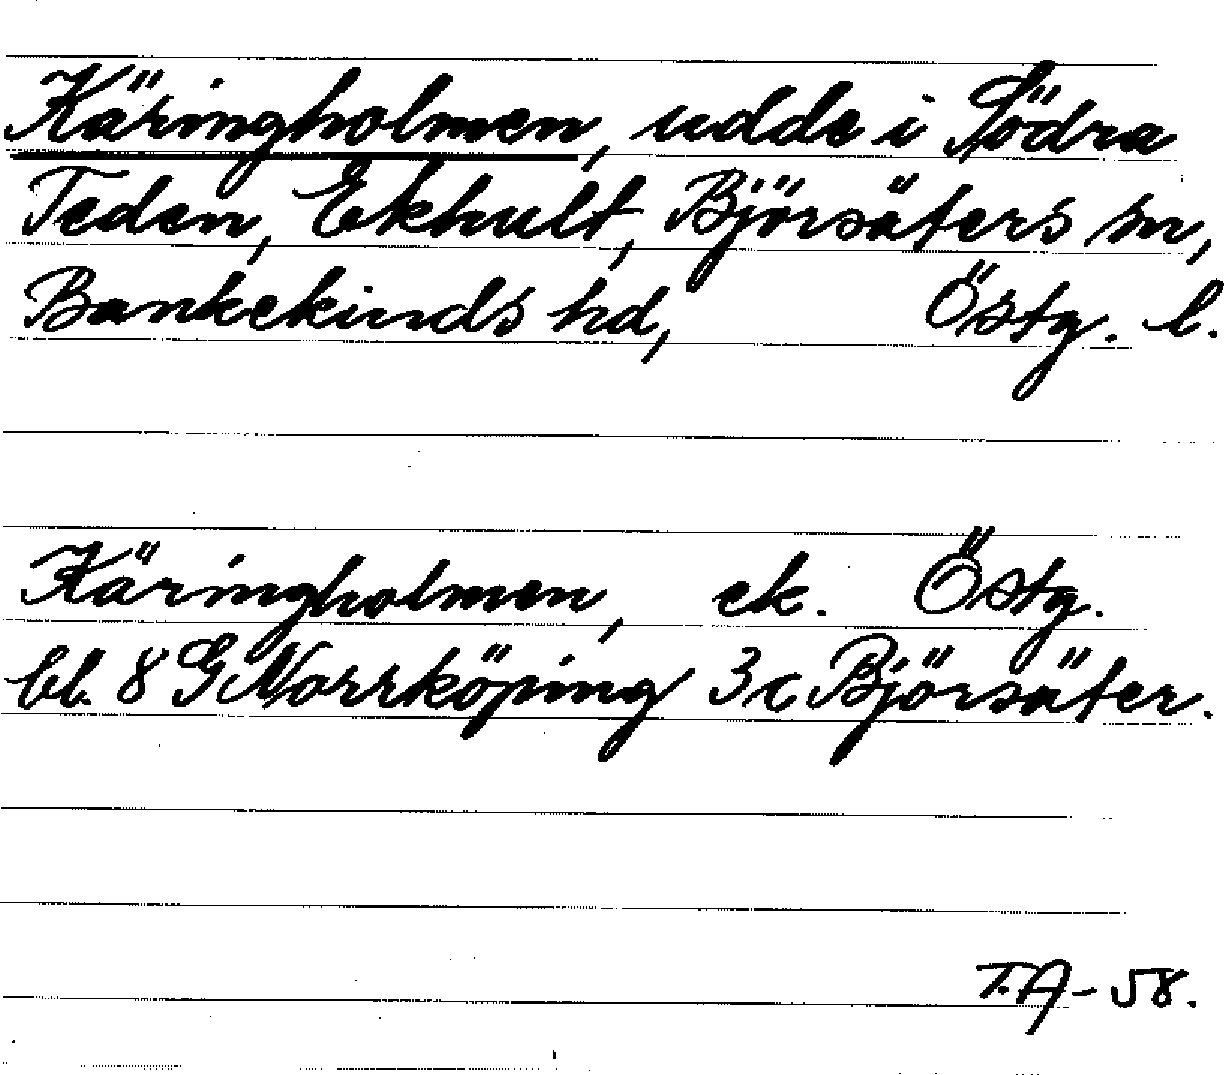 Käringholmen, udde i Södra
Teden, Ekhult, Björsäters sn,
Bankekinds hd, Östg. l.
Käringholmen, ek. Östg.
bl. 8 G Norrköping 3 c Björsäter.
T.A-58.